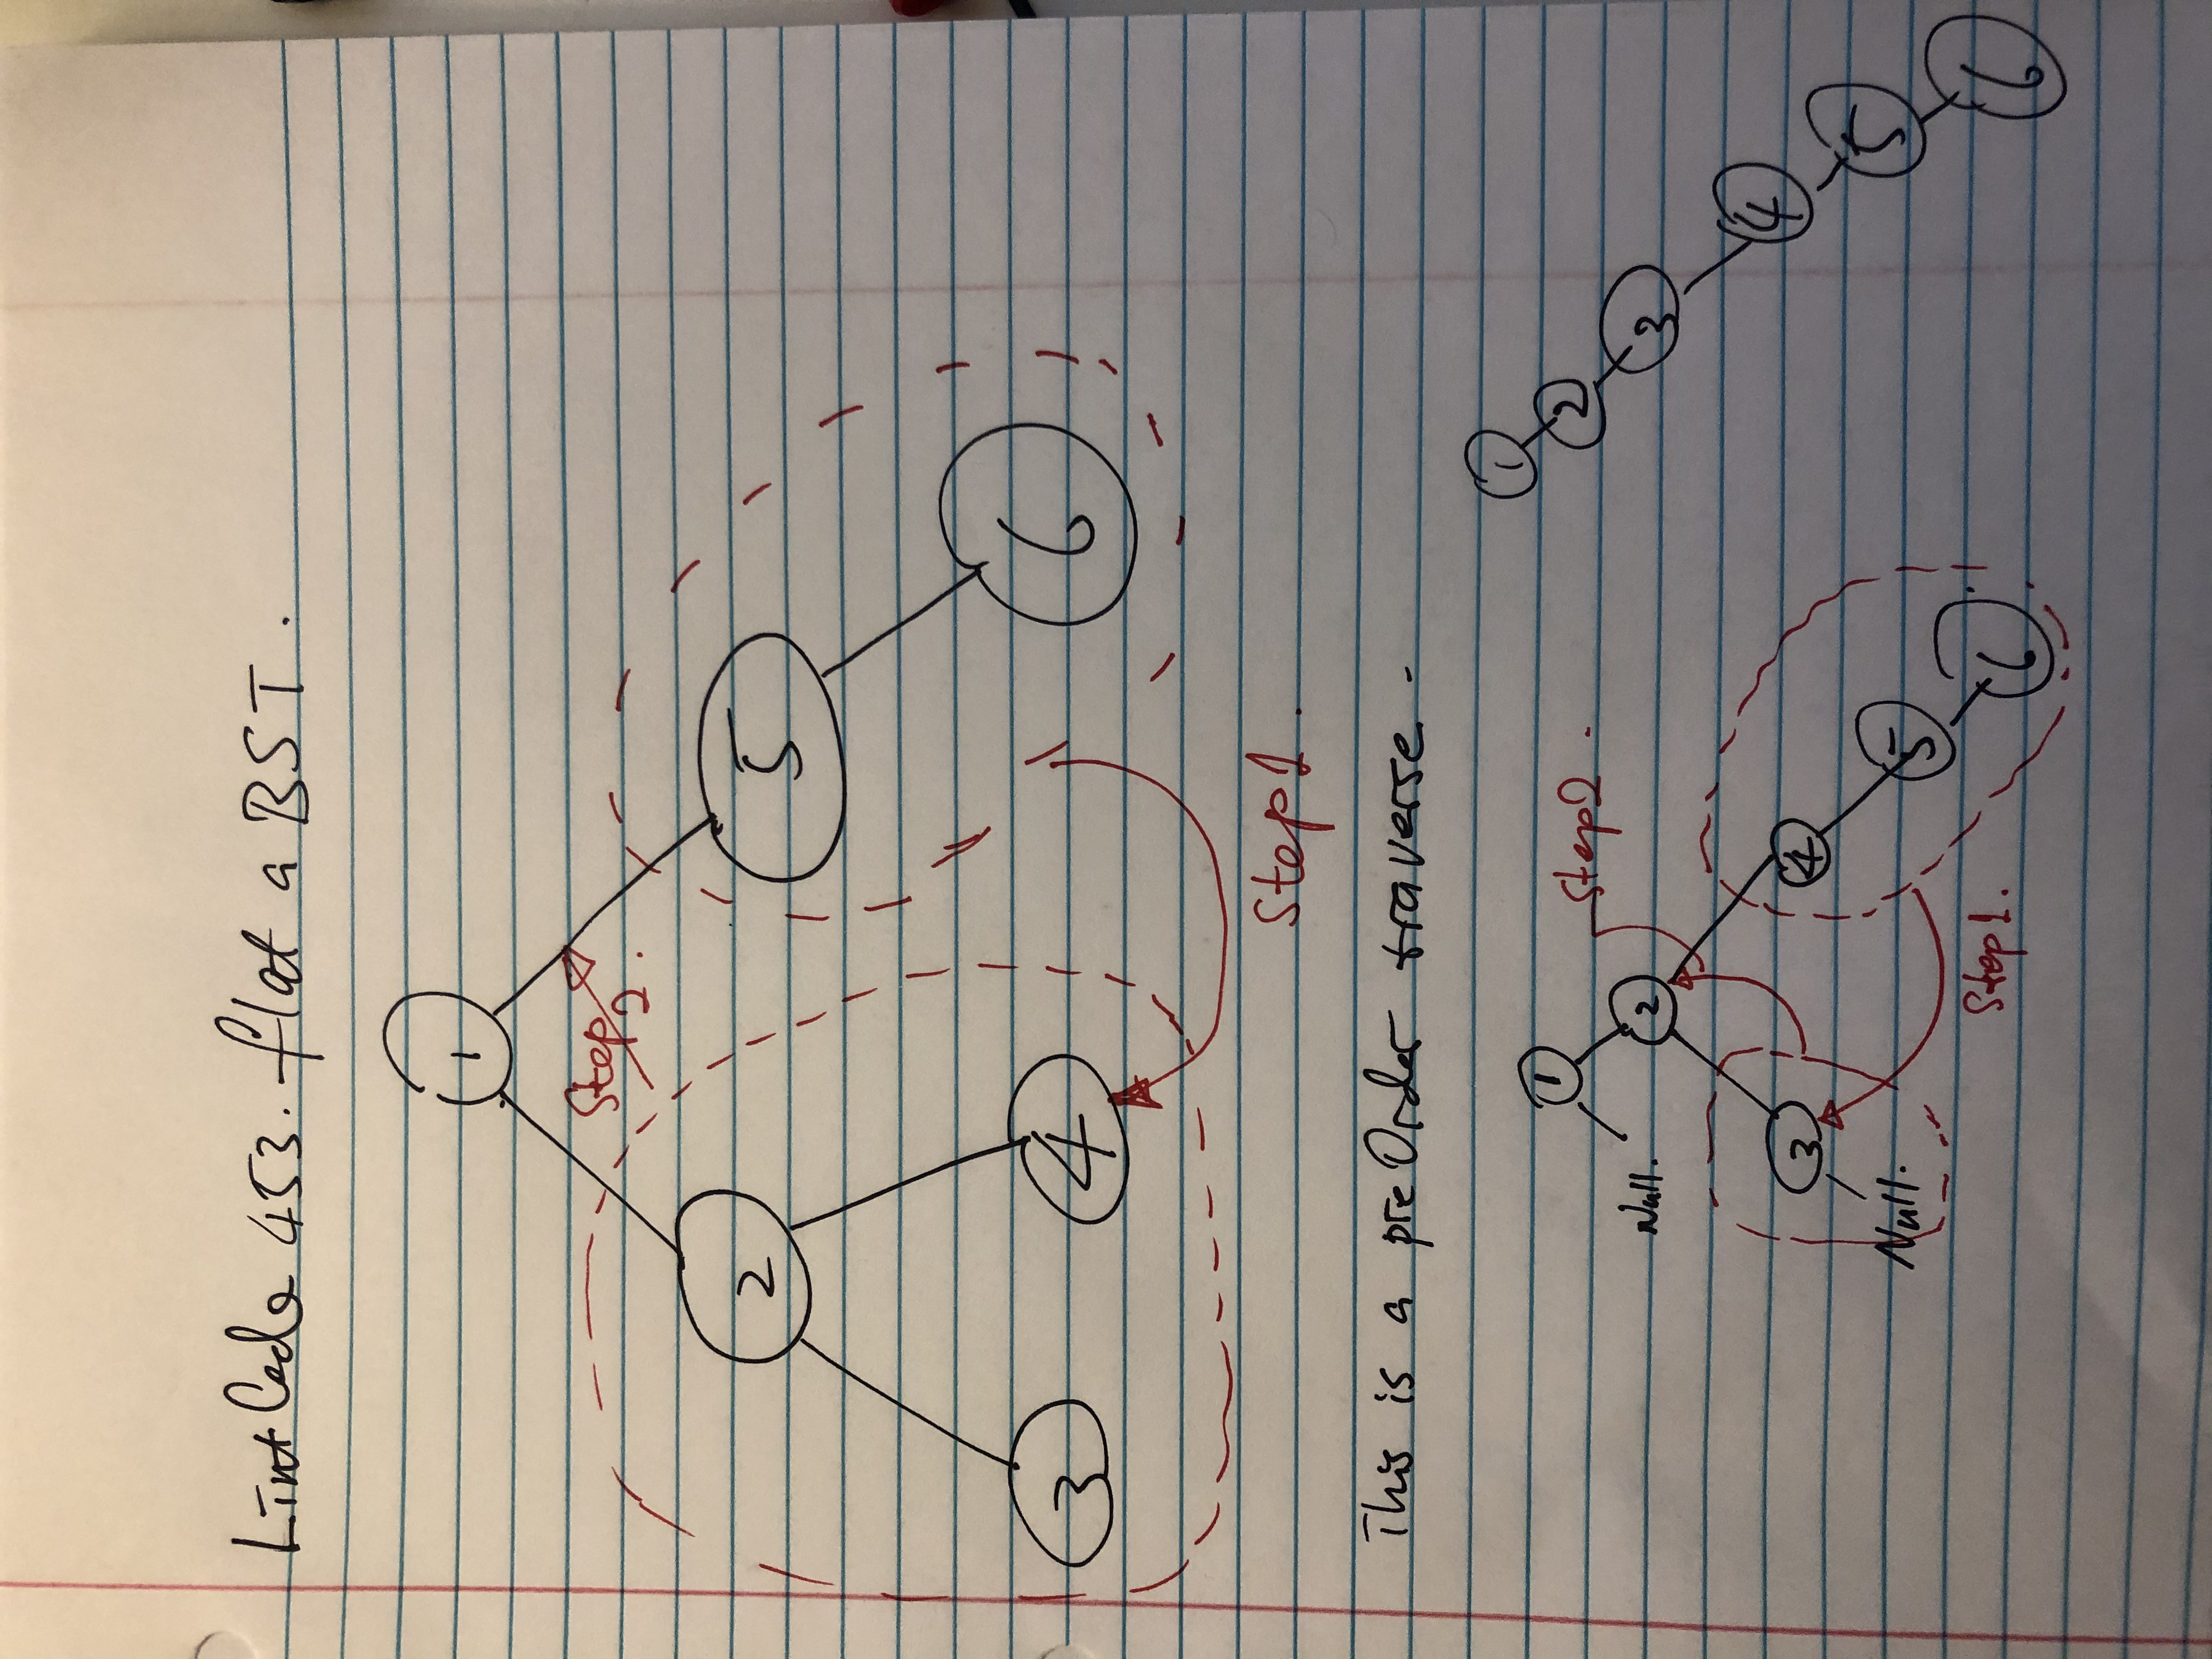 LintCode 453. flat a BST.
1
Step 2.
2
5
3
4
6
Step1.
This is a preOrder traverse.
1
Null.
2
Step2.
3
4
Null.
5
6
Step1.
1
2
3
4
5
6